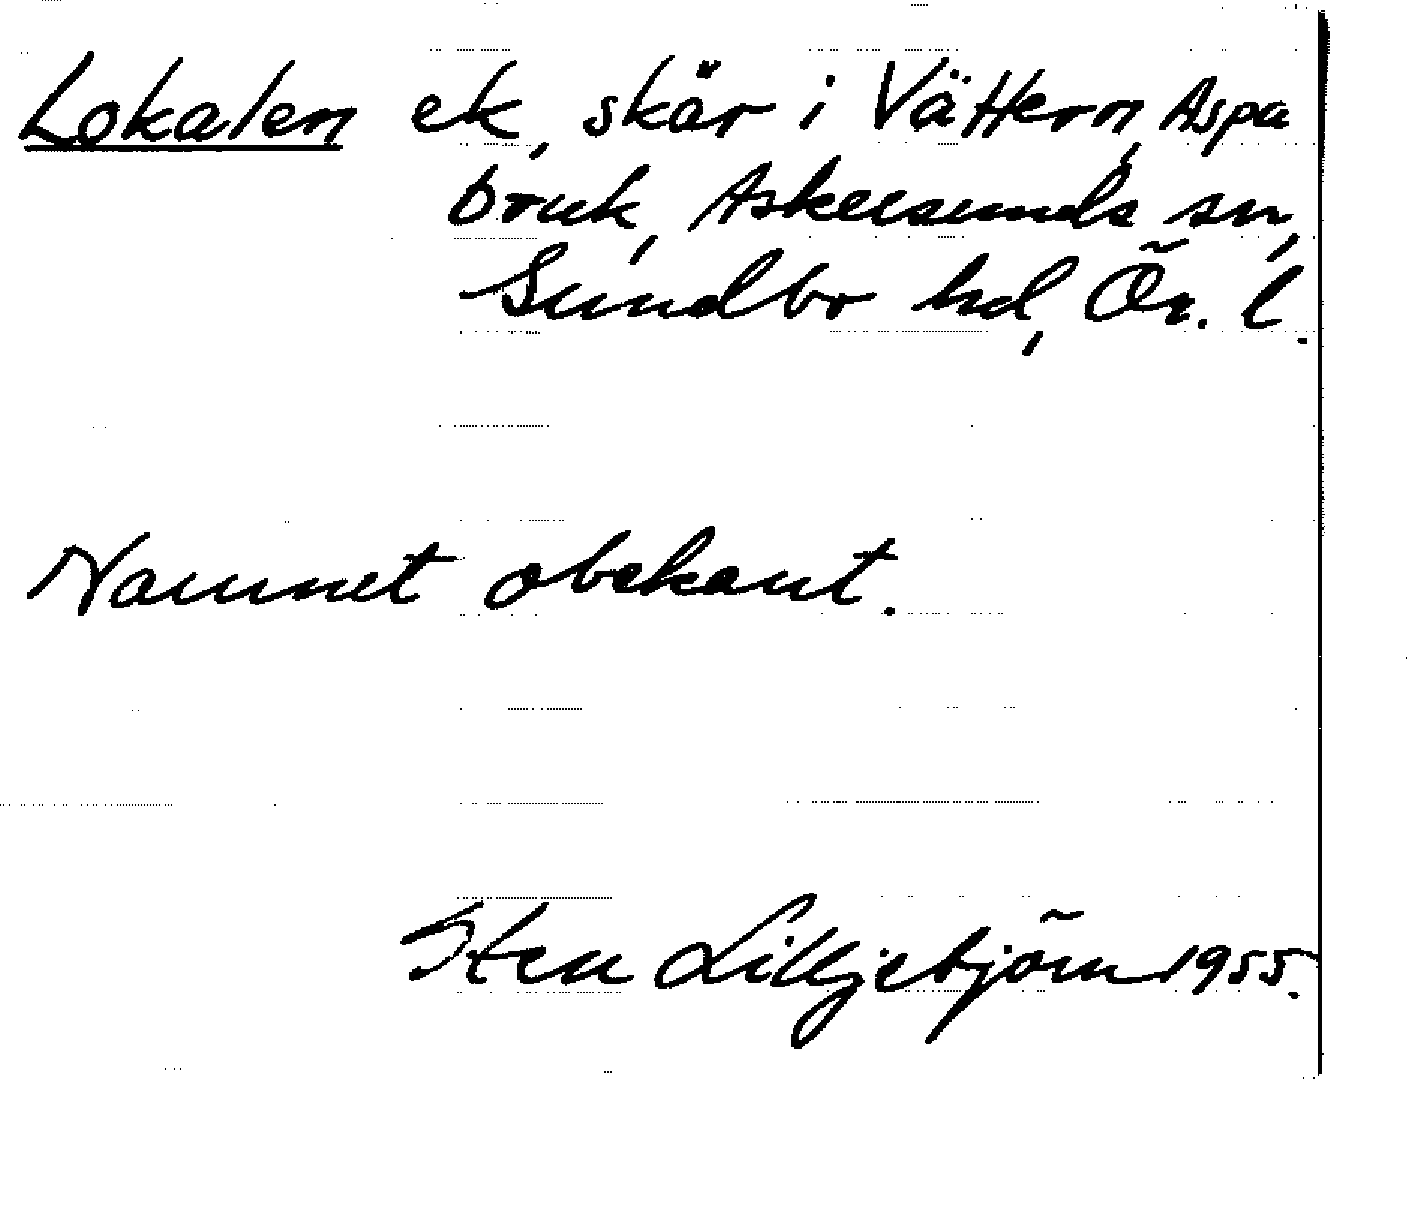 Lokalen ek, skär i Vättern, Aspa
bruk, Askersunds sn,
Sundbo hd, Ör. l.
Namnet obekant.
Sten Lilljebjörn 1955.